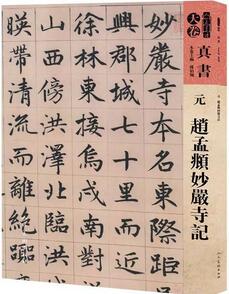 妙嚴寺本名東際距
興郡城七十里而
徐林東接烏戍南對
山西傍洪澤北臨洪
映帶清流而離絕
大卷
真書
元
趙孟頫妙嚴寺記